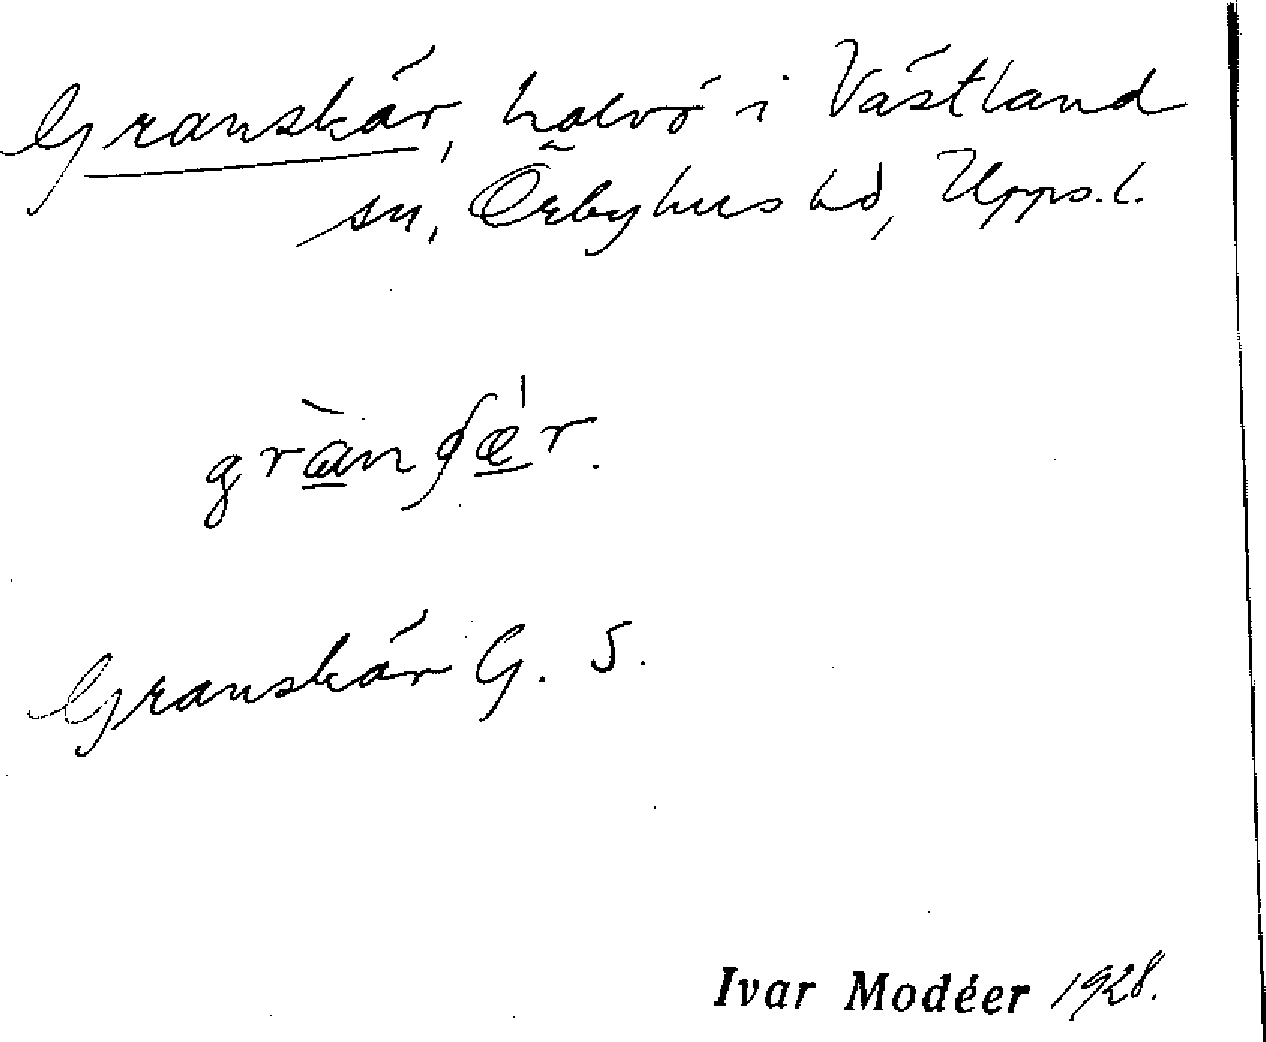 Granskär, halvö i Västland
sn, Örbyhus hd, Upps. l.
grànʃǽr.
Granskär G. S.
Ivar Modéer 1928.